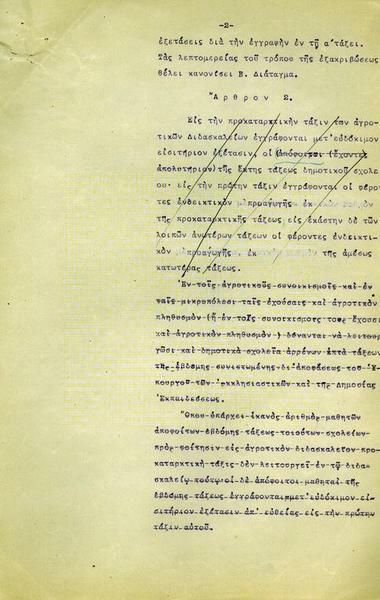 -2-
ἐξετάσεις διά τήν ἐγγραφήν ἐν τῇ α΄τάξει.
Τάς λεπτομερείας τοῦ τρόπου τῆς ἐξακριβώσεως
θέλει κανονίσει Β. Διάταγμα.
Ἄρθρον 2.
Εἰς τήν προκαταρκτικήν τάξιν τῶν ἀγρο-
τικῶν Διδασκαλείων ἐγγράφονται μετ'εὐδόκιμον
εἰσιτήριον ἐξέτασιν, οἱ (ἀπόφοιτοι (ἔχοντες
ἀπολυτήριον) τῆς ἕκτης τάξεως δημοτικοῦ σχολε
ου· εἰς τήν πρώτην τάξιν ἐγγράφονται οἱ φέροντες
ἐνδεικτικόν προαγωγῆς ἐκ
τῆς προκαταρκτικῆς τάξεως εἰς ἑκάστην δέ τῶν
λοιπῶν ἀνωτέρων τάξεων οἱ φέροντες ἐνδεικτι-
κόν προαγωγῆς τῆς ἀμέσως
κατωτέρας τάξεως.
Ἐν τοῖς ἀγροτικοῖς συνοικισμοῖς καί ἐν
ταῖς μικροπόλεσι ταῖς ἐχούσαις καί ἀγροτικόν
πληθυσμόν (ἤ ἐν τοῖς συνοικισμοῖς τοῖς ἔχουσι
καί ἀγροτικόν πληθυσμόν) δύνανται νά λειτουρ
γῶσι καί δημοτικά σχολεῖα ἀρρένων ἑπτά τάξεων
τῆς ἑβδόμης συνιστωμένης δι'ἀποφάσεως τοῦ Ὑ-
πουργοῦ τῶν Ἐκκλησιαστικῶν καί τῆς Δημοσίας
Ἐκπαιδεύσεως.
Ὅπου ὑπάρχει ἱκανός ἀριθμός μαθητῶν
ἀποφοίτων ἑβδόμης τάξεως τοιούτων σχολείων
πρός φοίτησιν εἰς ἀγροτικόν διδασκαλεῖον προ-
καταρκτική τάξις δέν λειτουργεῖ ἐν τῷ διδα-
σκαλείῳ τούτῳ· οἱ δέ ἀπόφοιτοι μαθηταί τῆς
ἑβδόμης τάξεως ἐγγράφονται μετ'εὐδόκιμον εἰ-
σιτήριον ἐξέτασιν ἀπ'εὐθείας εἰς τήν πρώτην
τάξιν αὐτοῦ.